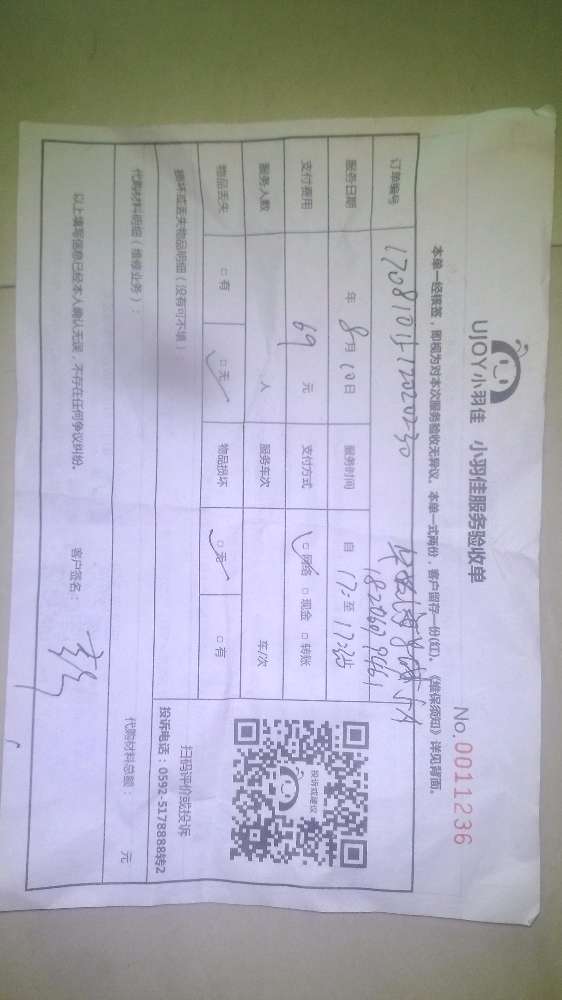 UJOY小羽佳 小羽佳服务验收单
No.0011236
本单一经核签，即视为对本次服务验收无异议。本单一式两份，客户留存一份(红)。《维保须知》详见背面。
订单编号
服务日期 年 8月 10日 服务时间 自 17: 至 17:
支付费用 69 元 支付方式 □网络 □现金 □转账
服务人数 人 服务车次 车/次
物品丢失 □有 □无 物品损坏 □无 □有
损坏或丢失物品明细（没有可不填）
投诉或建议
扫码评价或投诉
投诉电话：0592-5178888转2
代购材料明细（维修业务）：
代购材料总额： 元
以上填写信息已经本人确认无误，不存在任何争议纠纷。
客户签名：